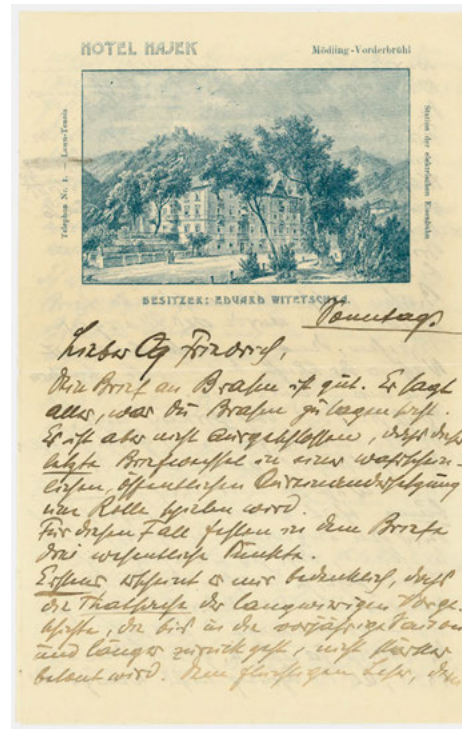 HOTEL HAJEK
Mödling-Vorderbrühl
Telephon Nr. 1. — Lawn-Tennis
Station der elektrischen Eisenbahn
BESITZER: EDUARD WITETSCHKA.
Sonntag.
Lieber Friedrich,
Dein Brief an Brahm ist gut. Er sagt
alles, was Du Brahm zu sagen hast.
Er ist aber nicht ausgeschlossen, daß dieser
letzte Briefwechsel in einer wahrschein-
lichen, öffentlichen Auseinandersetzung
eine Rolle spielen wird.
Für diesen Fall fehlen in dem Briefe
drei wesentliche Punkte.
Erstens erscheint es mir bedenklich, daß
die Thatsache der langwierigen Vorge-
schichte, die bis in die vorjährige Saison
und länger zurückgeht, nicht stärker
betont wird. Dem flüchtigen Leser, dem